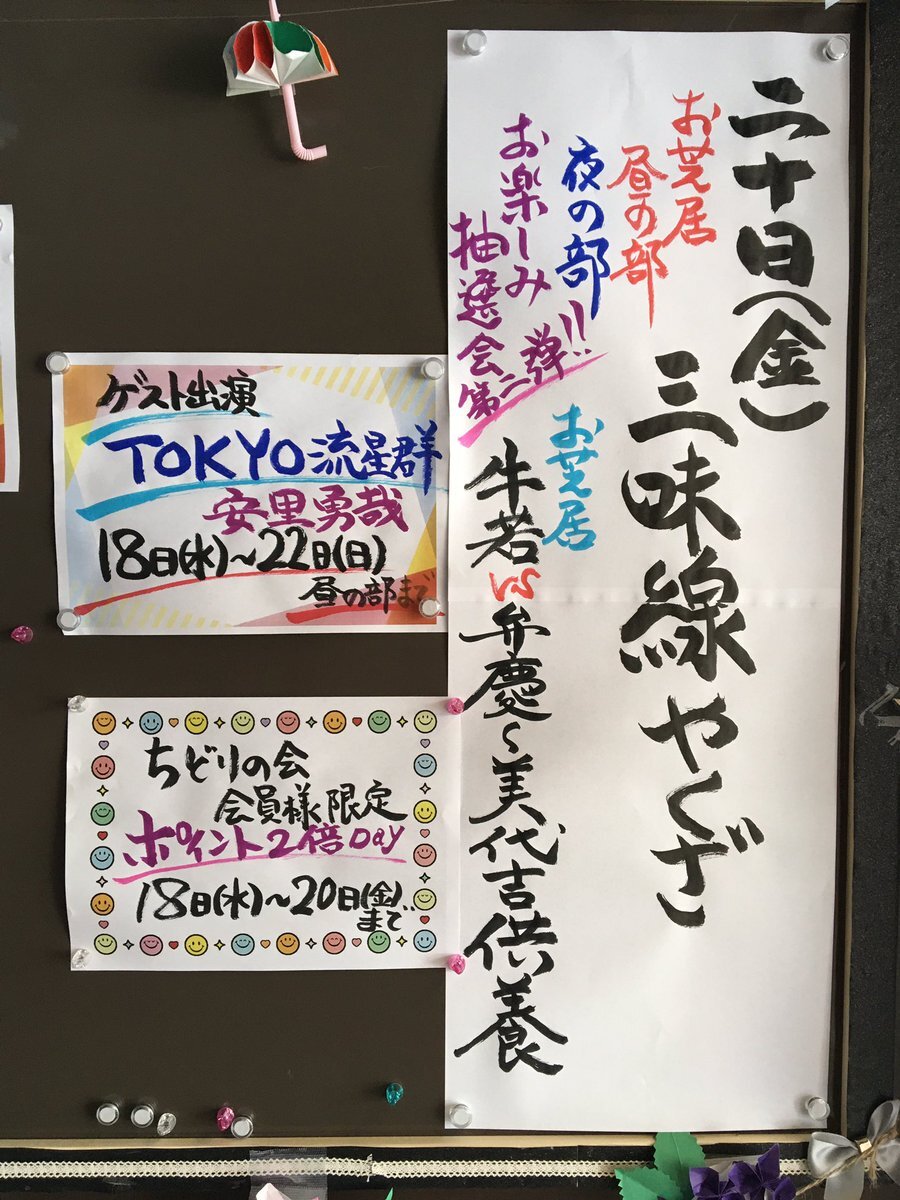 二十日(金)
お芝居
昼の部
三味線やくざ
夜の部
お楽しみ
抽選会
第二弾!!
お芝居
牛若vs弁慶~美代吉供養
ゲスト出演
TOKYO流星群
安里勇哉
18日(水)~22日(日)
昼の部まで
ちどりの会
会員様限定
ポイント2倍Day
18日(水)~20日(金)
まで